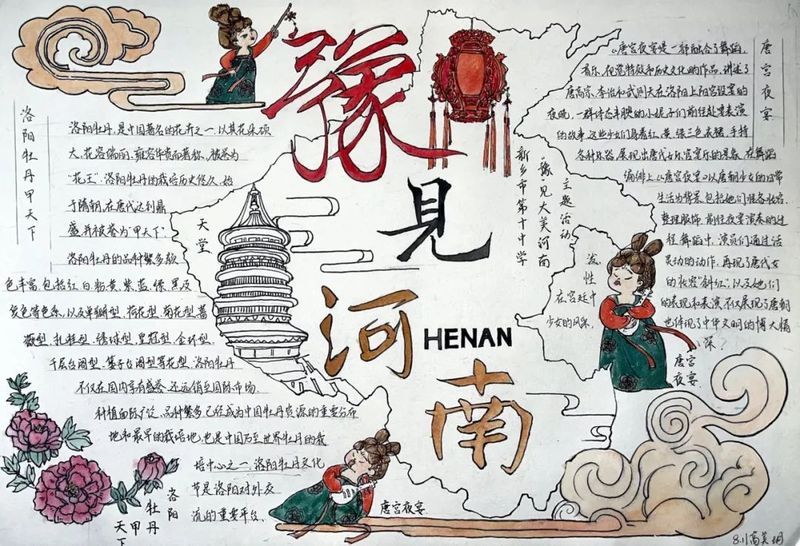 豫
見
河
HENAN
南
洛阳牡丹甲天下
洛阳牡丹,是中国著名的花卉之一以其花朵硕
大,花容端丽,雍容华贵而著称,被誉为
"花王"。洛阳牡丹的栽培历史悠久,始
于隋朝,在唐代达到鼎
盛,并被誉为"甲天下"
洛阳牡丹的品种繁多,颜
色丰富,包括红、白、粉、黄、紫、蓝、绿、黑及
复色等色系,以及单瓣型、荷花型、菊花型、蔷
薇型、托桂型、绣球型、皇冠型、金环型、
千层台阁型、楼子台阁型等花型,洛阳牡丹
不仅在国内享有盛誉,还远销至国际市场
种植面积广泛,品种繁多,已经成为中国牡丹资源的重要分布
地和最早的栽培地,也是中国乃至世界牡丹的栽
培中心之一,洛阳牡丹文化
节是洛阳对外交
流的重要平台。
洛阳
牡丹
甲
天下
天堂
新乡市第十中学
"豫"见大美河南
主题活动
唐宫夜宴
《唐宫夜宴是一部融合了舞蹈,
音乐,视觉特效和历史文化的作品,讲述了
唐高宗、李治和武则天在洛阳上阳宫设宴的
夜晚,一群体态丰腴的小姬子们前往赴宴表演
的故事,这些少女们身着红、黄、绿三色衣裙,手持
各种乐器,展现出唐代女乐官享乐的景象,在舞蹈
编排上《唐宫夜宴》以唐朝少女的日常
生活为背景,包括她们准备妆容,
整理服饰,前往夜宴演奏的过
程,舞蹈中,演员们通过活
泼
灵动的动作,再现了唐代女
性
的妆容"斜红",以及她们
在宫廷中
的表现和表演,不仅展现了唐朝
少女的风采,
也体现了中华文明的博大精
深。
唐宫
夜宴
唐宫夜宴
8.11